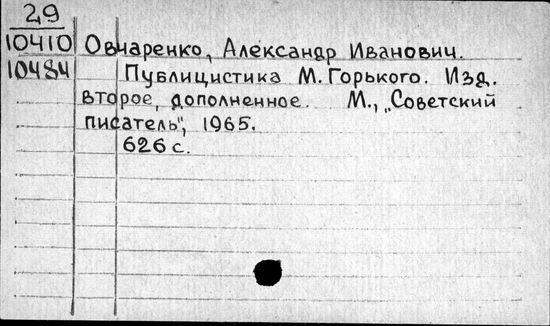 29
10410 Овчаренко, Александр Иванович.
10484 Публицистика М. Горького. Изд.
второе, дополненное. М., „Советский
писатель", 1965.
626 с.